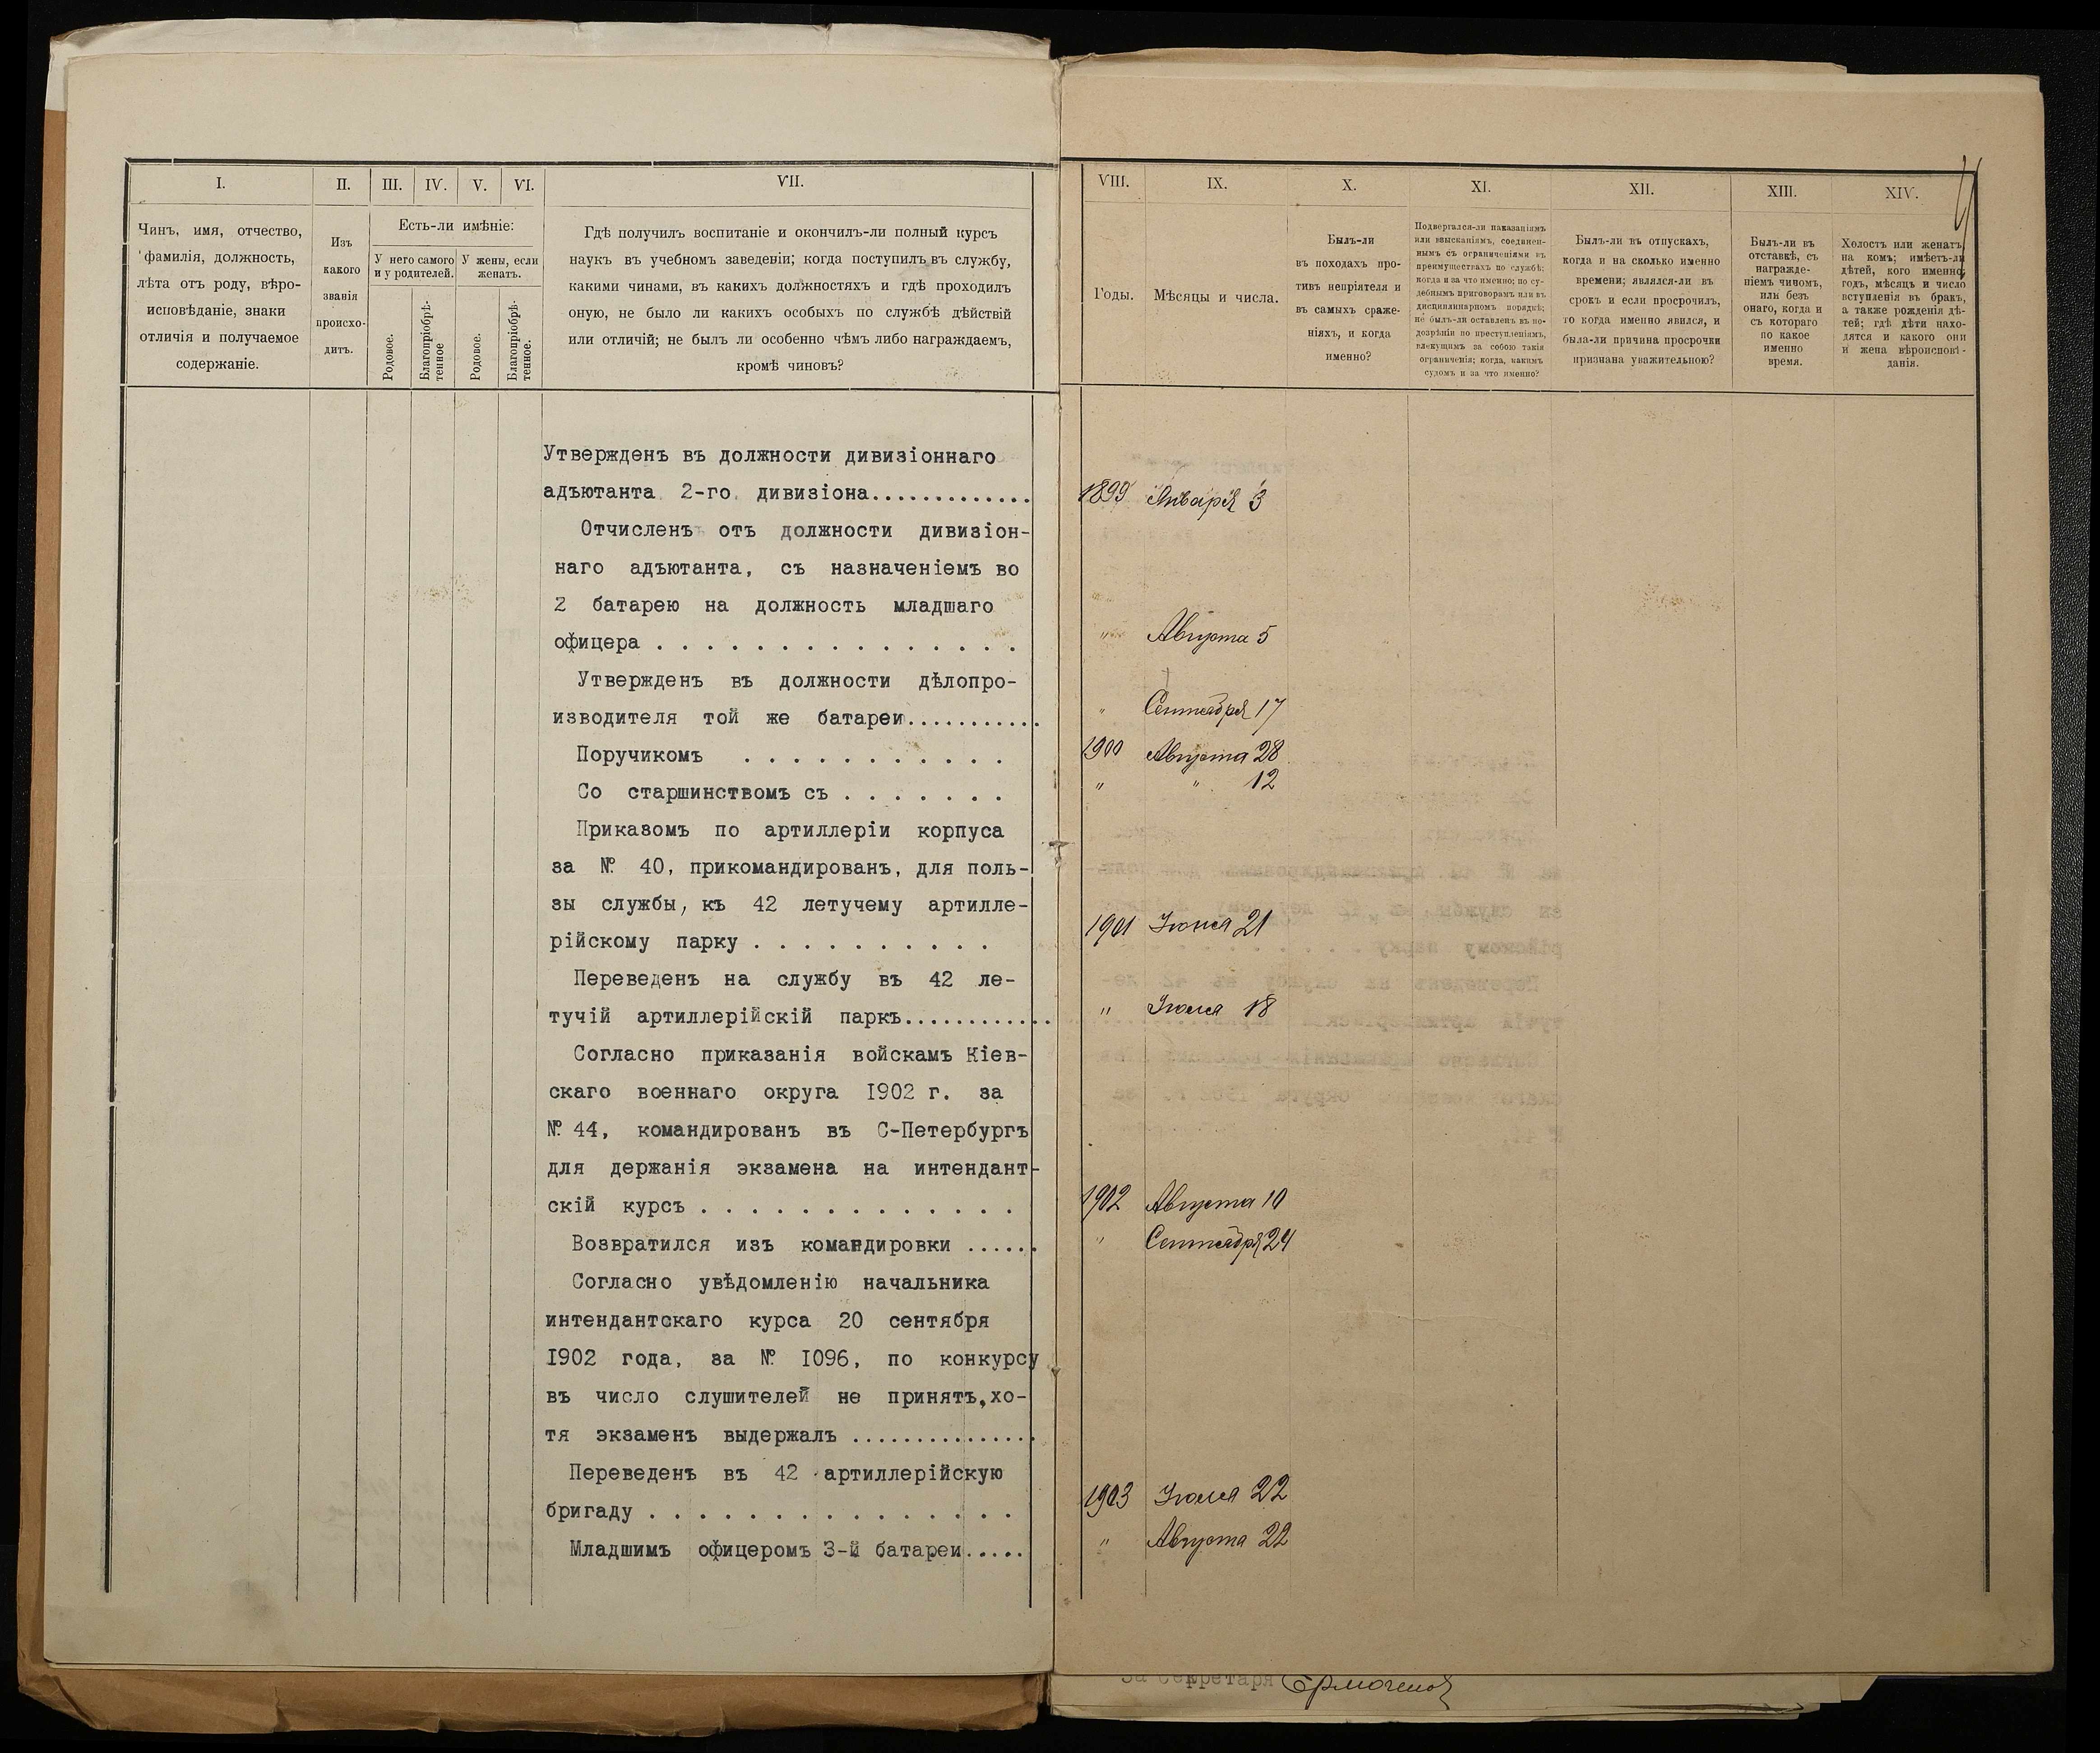 I.
II.
III.
IV.
V.
VI.
VII.
Чинъ, имя, отчество,
фамилія, должность,
лѣта отъ роду, вѣро-
исповѣданіе, знаки
отличія и получаемое
содержаніе.
Изъ
какого
званія
происхо-
дитъ.
Есть-ли имѣніе:
У него самого
и у родителей.
У жены, если
женатъ.
Родовое.
Благопріобрѣ-
тенное
Родовое.
Благопріобрѣ-
тенное.
Гдѣ получилъ воспитаніе и окончилъ-ли полный курсъ
наукъ въ учебномъ заведеніи; когда поступилъ въ службу,
какими чинами, въ какихъ должностяхъ и гдѣ проходилъ
оную, не было ли какихъ особыхъ по службѣ дѣйствій
или отличій; не былъ ли особенно чѣмъ либо награждаемъ,
кромѣ чиновъ?
Утвержденъ въ должности дивизіоннаго
адъютанта 2-го дивизіона.............
Отчисленъ отъ должности дивизіон-
наго адъютанта, съ назначеніемъ во
2 батарею на должность младшаго
офицера . . . . . . . . . . . . . . .
Утвержденъ въ должности дѣлопро-
изводителя той же батареи...........
Поручикомъ . . . . . . . . . . .
Со старшинствомъ съ . . . . . . .
Приказомъ по артиллеріи корпуса
за № 40, прикомандированъ, для поль-
зы службы, къ 42 летучему артилле-
рійскому парку . . . . . . . . . .
Переведенъ на службу въ 42 ле-
тучій артиллерійскій паркъ............
Согласно приказанія войскамъ Кіев-
скаго военнаго округа 1902 г. за
№ 44, командированъ въ С-Петербургъ
для держанія экзамена на интендант-
скій курсъ . . . . . . . . . . . . .
Возвратился изъ командировки ......
Согласно увѣдомленію начальника
интендантскаго курса 20 сентября
1902 года, за № 1096, по конкурсу
въ число слушителей не принятъ,хо-
тя экзаменъ выдержалъ ...............
Переведенъ въ 42 артиллерійскую
бригаду . . . . . . . . . . . . . . .
Младшимъ офицеромъ 3-й батареи.....
VIII.
IX.
X.
XI.
XII.
XIII.
XIV.
Годы.
Мѣсяцы и числа.
Былъ-ли
въ походахъ про-
тивъ непріятеля и
въ самыхъ сраже-
ніяхъ, и когда
именно?
Подвергался-ли наказаніямъ
или взысканіямъ, соединен-
нымъ съ ограниченіями въ
преимуществахъ по службѣ;
когда и за что именно; по су-
дебнымъ приговорамъ или въ
дисциплинарномъ порядкѣ;
не былъ-ли оставленъ въ по-
дозрѣніи по преступленіямъ,
влекущимъ за собою такія
ограниченія; когда, какимъ
судомъ и за что именно?
Былъ-ли въ отпускахъ,
когда и на сколько именно
времени; являлся-ли въ
срокъ и если просрочилъ,
то когда именно явился, и
была-ли причина просрочки
признана уважительною?
Былъ-ли въ
отставкѣ, съ
награжде-
ніемъ чиномъ,
или безъ
онаго, когда и
съ котораго
по какое
именно
время.
Холостъ или женатъ,
на комъ; имѣетъ-ли
дѣтей, кого именно;
годъ, мѣсяцъ и число
вступленія въ бракъ,
а также рожденія дѣ-
тей; гдѣ дѣти нахо-
дятся и какого они
и жена вѣроисповѣ-
данія.
1899 Января 3
" Августа 5
" Сентября 17
1900 Августа 28
" " 12
1901 Іюня 21
" Іюля 18
1902 Августа 10
" Сентября 24
1903 Іюля 22
" Августа 22
За Секретаря